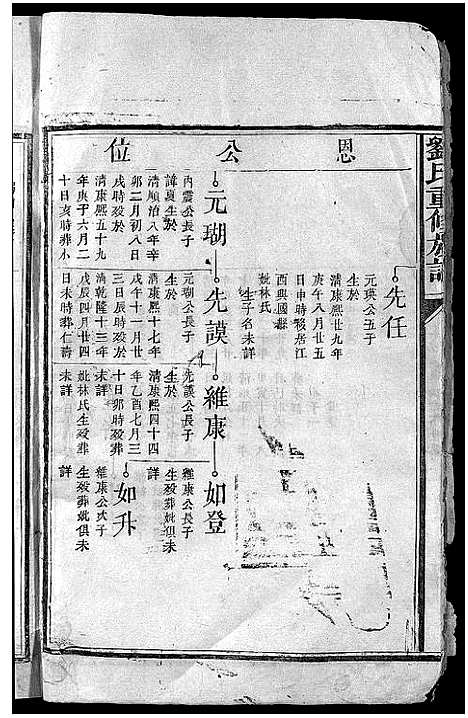 劉氏重修族譜
恩公位
先任
元瑛公五子
生於
清康熙廿九年
庚午八月廿五
日申時移居江
西興國縣
妣林氏
生子名未詳
元瑚
內震公長子
諱夏生於
清順治八年辛
卯二月初八日
戌時歿於
清康熙五十九
年庚子六月二
十日亥時葬小
先謨
元瑚公長子
生於
清康熙十七年
戊午十一月廿
三日辰時歿於
清乾隆十三年
戊辰四月廿四
日未時葬仁壽
維康
先謨公長子
生於
清康熙四十四
年乙酉七月三
十日卯時歿葬
未詳
妣林氏生歿葬
未詳
如登
維康公長子
生歿葬妣俱未
詳
如升
維康公次子
生歿葬妣俱未
詳